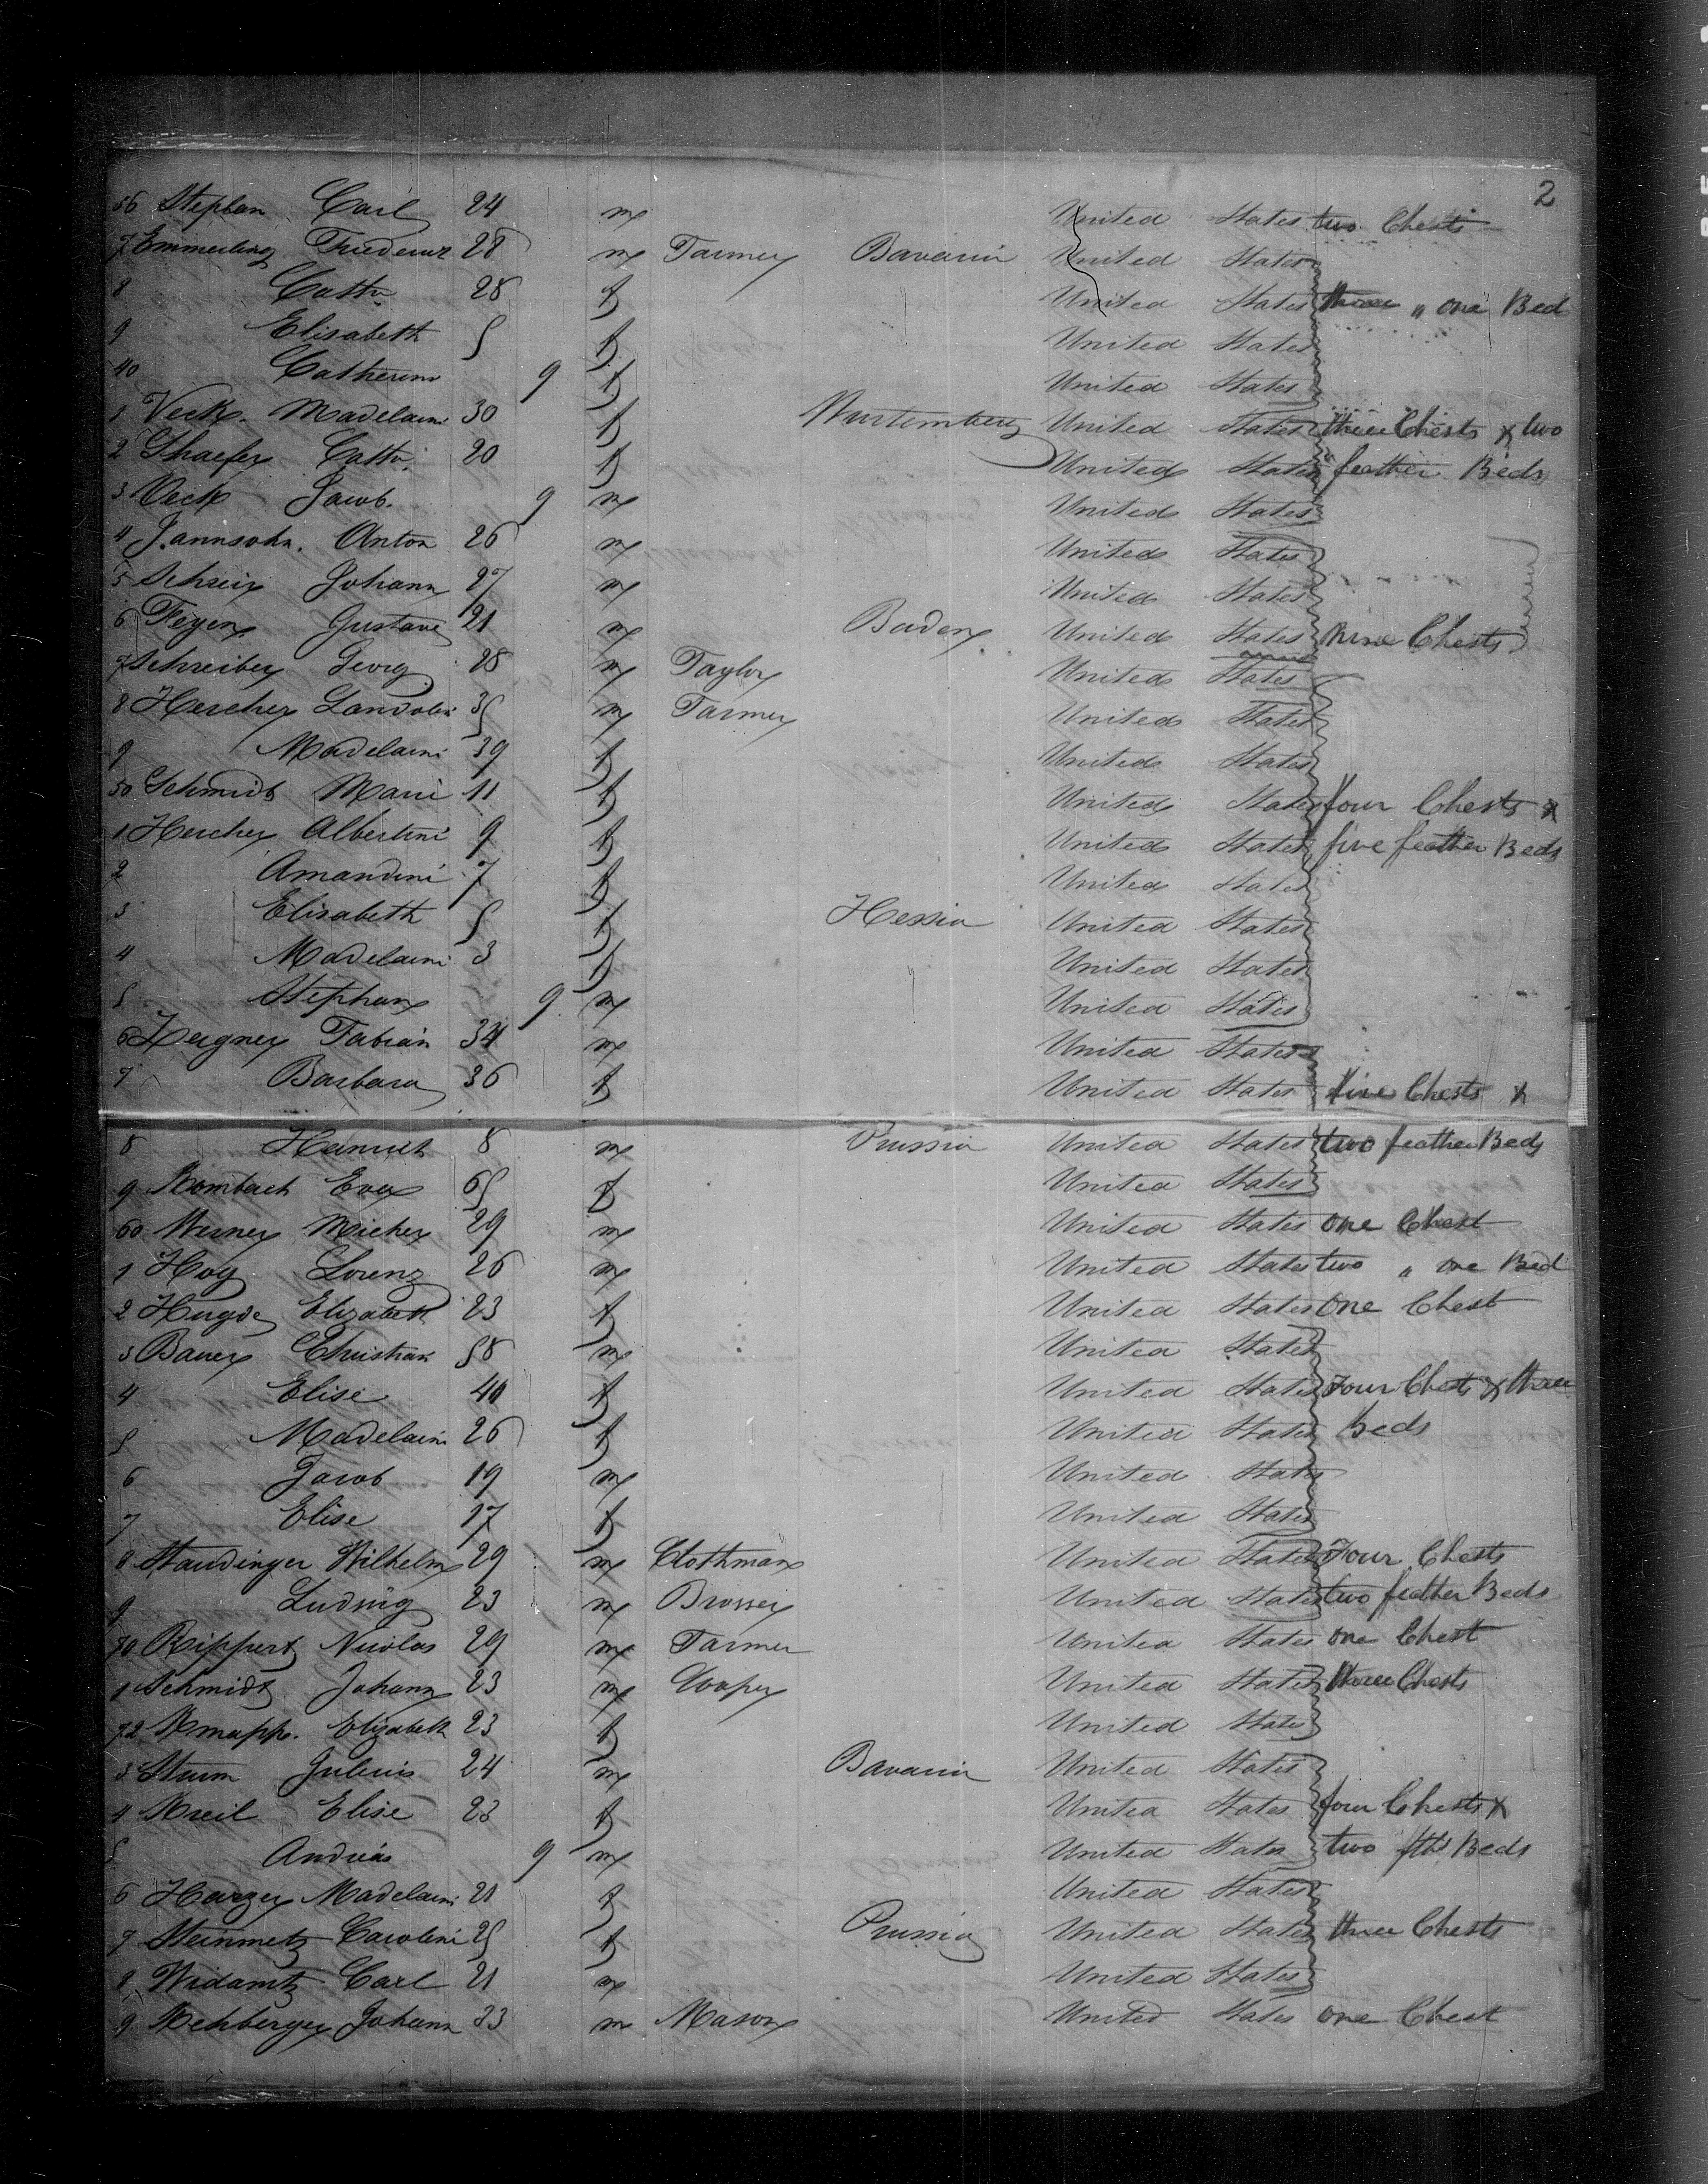 2
36 Stephan Carl 24 m United States two Chests
7 Emmerling Friederich 28 m Farmer Bavaria United States
8 Cath. 28 f United States three " one Bed
9 Elisabeth 5 f United States
40 Catherine 9 f United States
1 Veck. Madelaine 30 f Wurtemberg United States three Chests & two
2 Schaefer Cath. 20 f United States feather Beds
3 Veck Jacob. 9 m United States
4 Jannsohn. Anton 26 m United States
5 Johann 27 m United States
6 Feyen Gustave 21 m Baden United States nine Chests
7 Schreiber Georg 28 m Taylor United States
8 Hercher Landolin 35 m Farmer United States
9 Madelaine 39 f United States
50 Schmidt Marie 11 f United States four Chests &
1 Hercher Albertine 9 f United States five feather Beds
2 Amandine 7 f United States
3 Elisabeth 5 f Hessia United States
4 Madelaine 3 f United States
5 Stephan 9 m United States
6 Fabian 34 m United States
7 Barbara 36 f United States five Chests &
8 8 m Prussia United States two feather Beds
9 Rombach Eva 65 f United States
60 Werner 29 m United States one Chest
1 Hog Lorenz 26 m United States two " one Bed
2 Elizabeth 23 f United States one Chest
3 Bauer Christian 58 m United States
4 Elise 40 f United States Four Chests & three
5 Madelaine 26 f United States Beds
6 Jacob 19 m United States
7 Elise 17 f United States
8 Staudinger Wilhelm 29 m Clothman United States Four Chests
9 Ludwig 23 m United States two feather Beds
70 Rippert Nicolas 29 m Farmer United States one Chest
1 Schmidt Johann 23 m Cooper United States three Chests
72 Knapp. Elizabeth 23 f United States
3 Sturm Julius 24 m Bavaria United States
4 Kreil Elise 23 f United States four Chests &
5 Andreas 9 m United States two fth Beds
6 Madelaine 21 f United States
7 Steinmetz Caroline 25 f Prussia United States three Chests
8 Widamtz Carl 21 m United States
9 Rehberger Johann 23 m Mason United States one Chest